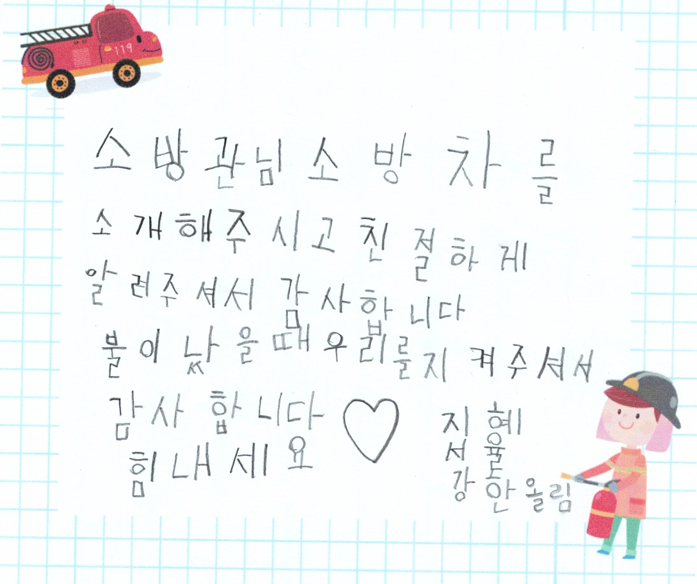 119
소방관님 소방차를
소개해주시고 친절하게
알려주셔서 감사합니다
불이 났을때 우리를 지켜주셔서
감사합니다 ♡
힘내세요
지혜
서율
강도안 올림